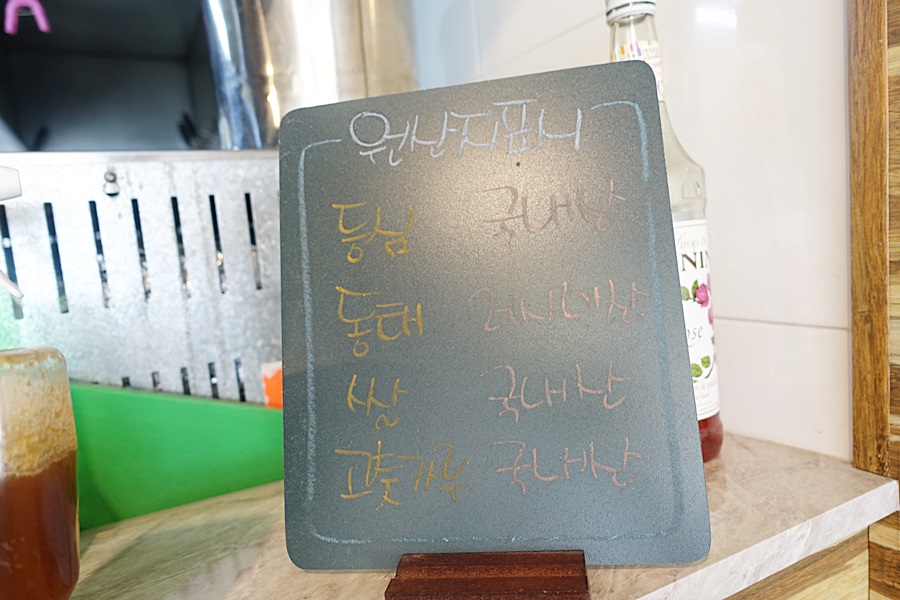 원산지표시
등심 국내산
동태 러시아산
쌀 국내산
고춧가루 국내산
NIN